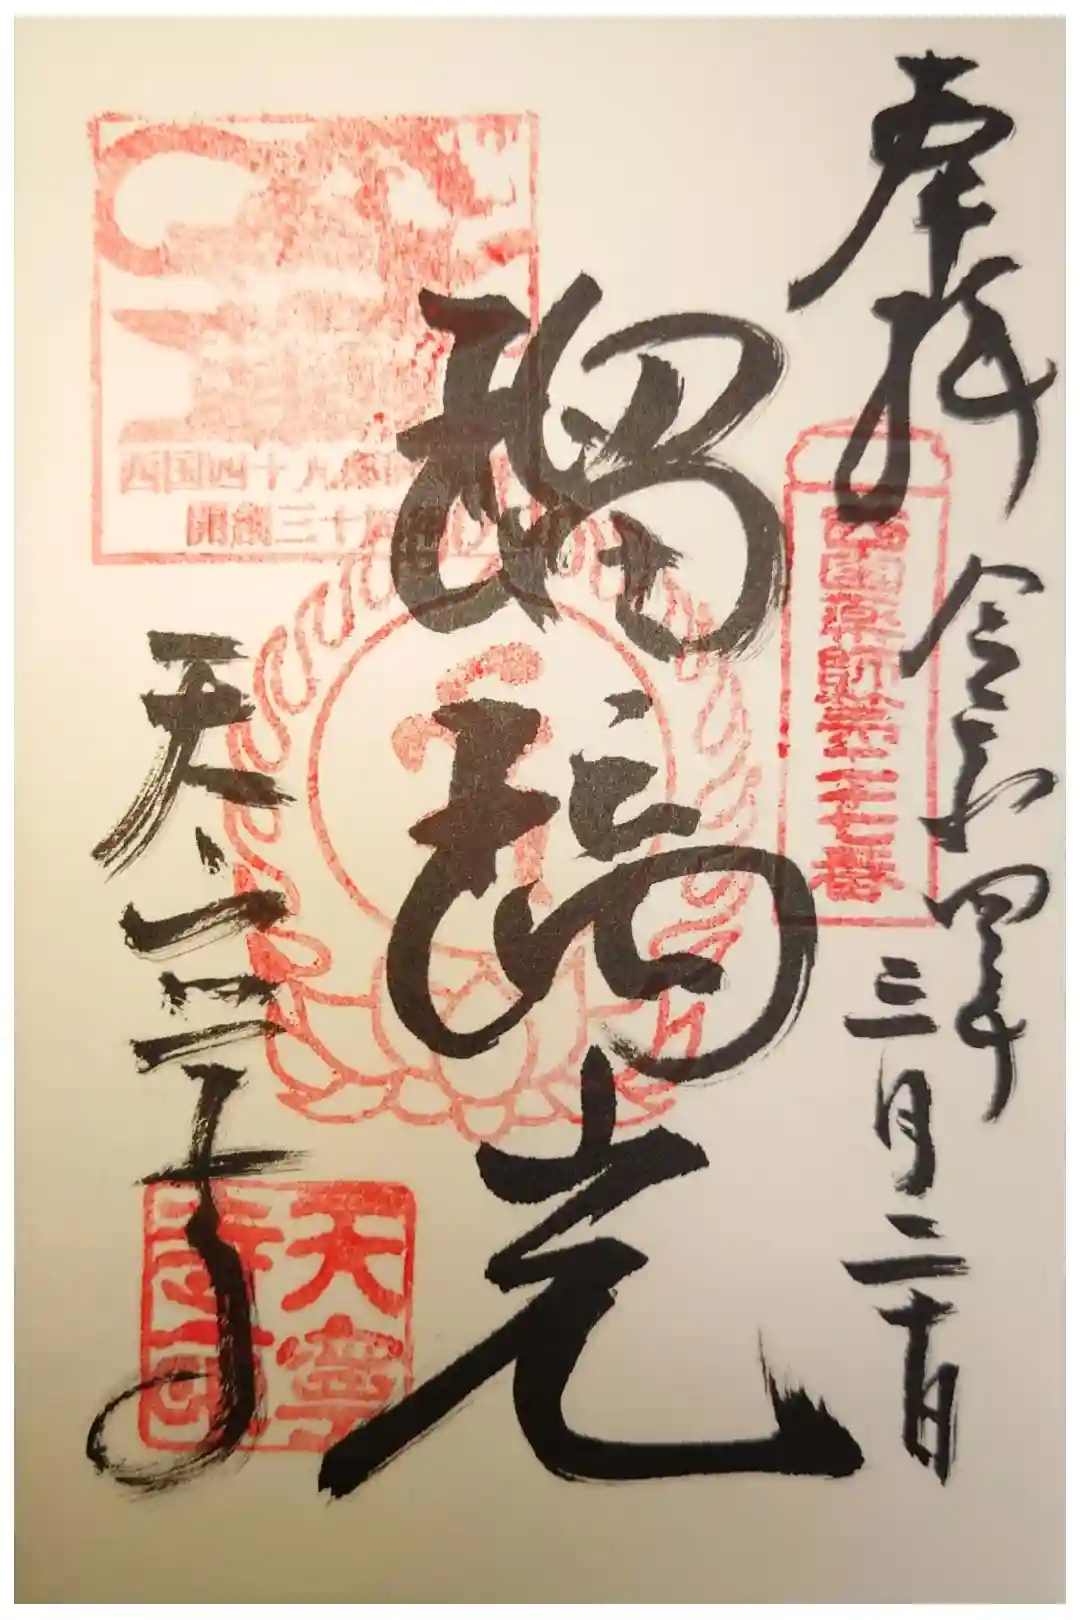 奉拝
令和四年
三月二十日
西國薬師第二十七番
瑠璃光
西国四十九薬師
開創三十周年
天寧寺
天寧
寺印